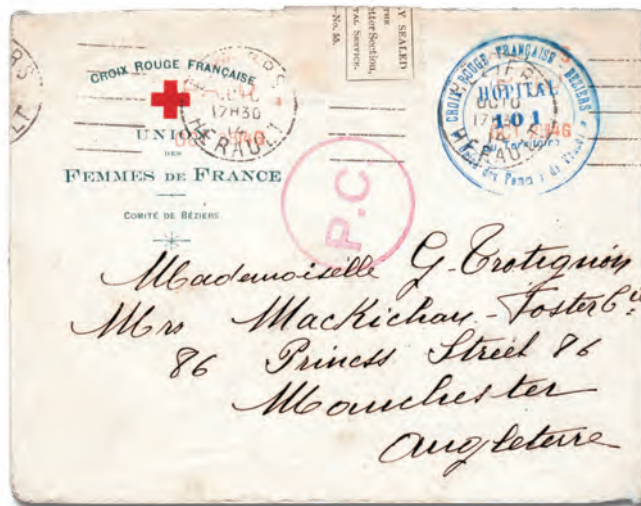 CROIX ROUGE FRANÇAISE
UNION
DES
FEMMES DE FRANCE
COMITÉ DE BÉZIERS
17H30
HERAULT
P.C.
Y SEALED
THE
etter Section,
TAL SERVICE.
—No. 45.
CROIX-ROUGE-FRANÇAISE-BEZIERS
HÔPITAL
101
du Territoire
17H30
HERAULT
Mademoiselle G. Trotignon
Mrs Mackichan-Foster Co.
86 Princss Street 86
Manchester
Angleterre